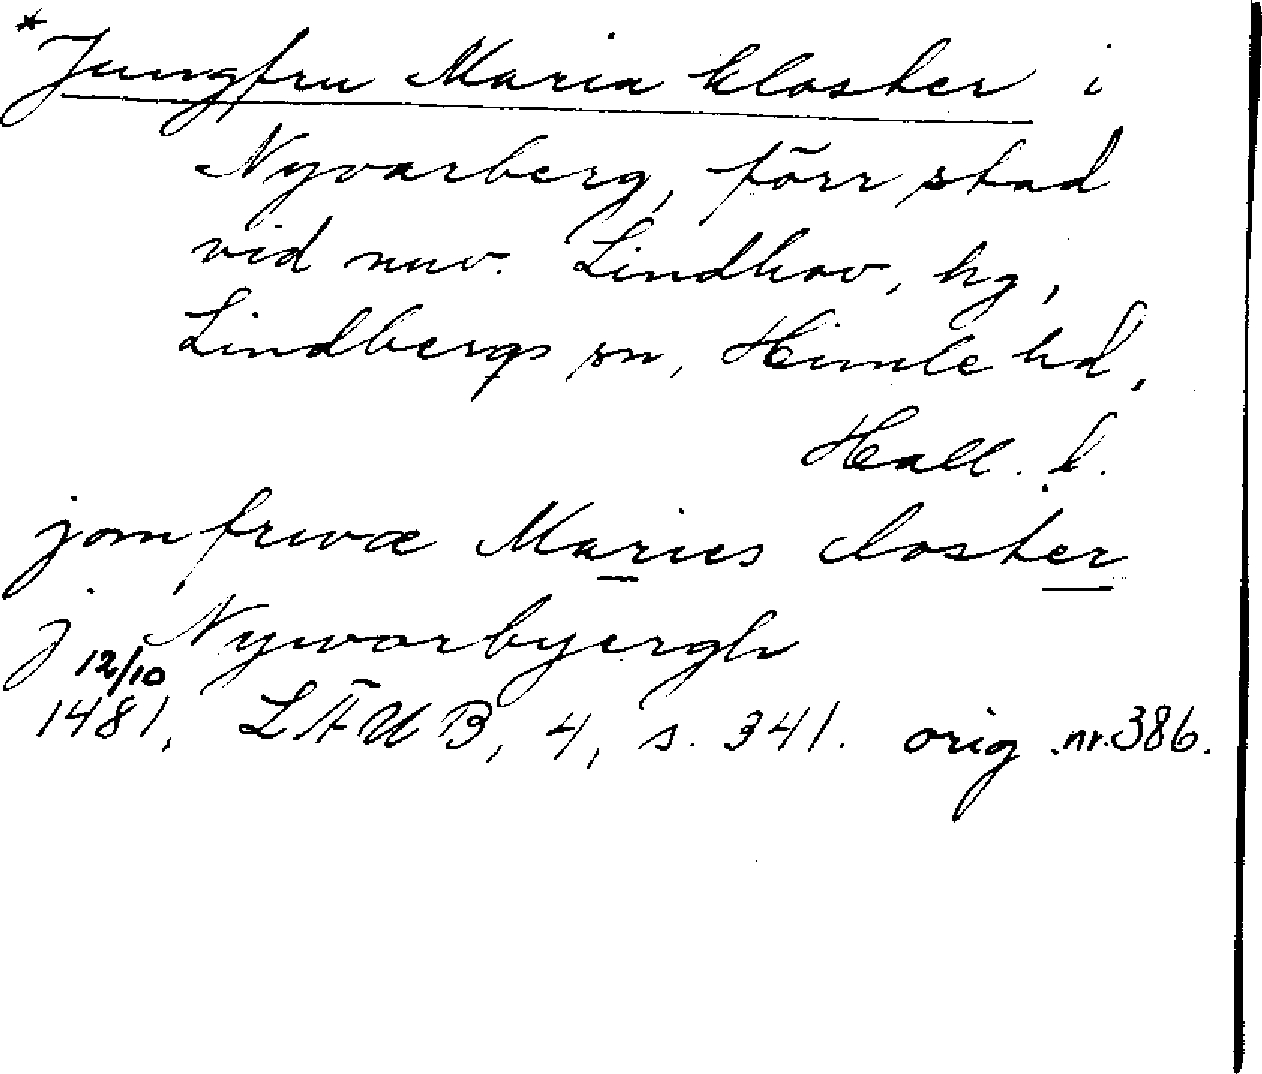 *Jungfru Maria kloster i
Nyvarberg, förr stad
vid nuv. Lindhov, hg,
Lindbergs sn, Himle hd,
Hall. l.
jomfrwæ Maries closter
j Nywarbyergh
12/10
1481, LÄUB, 4, s. 341. orig .nr.386.